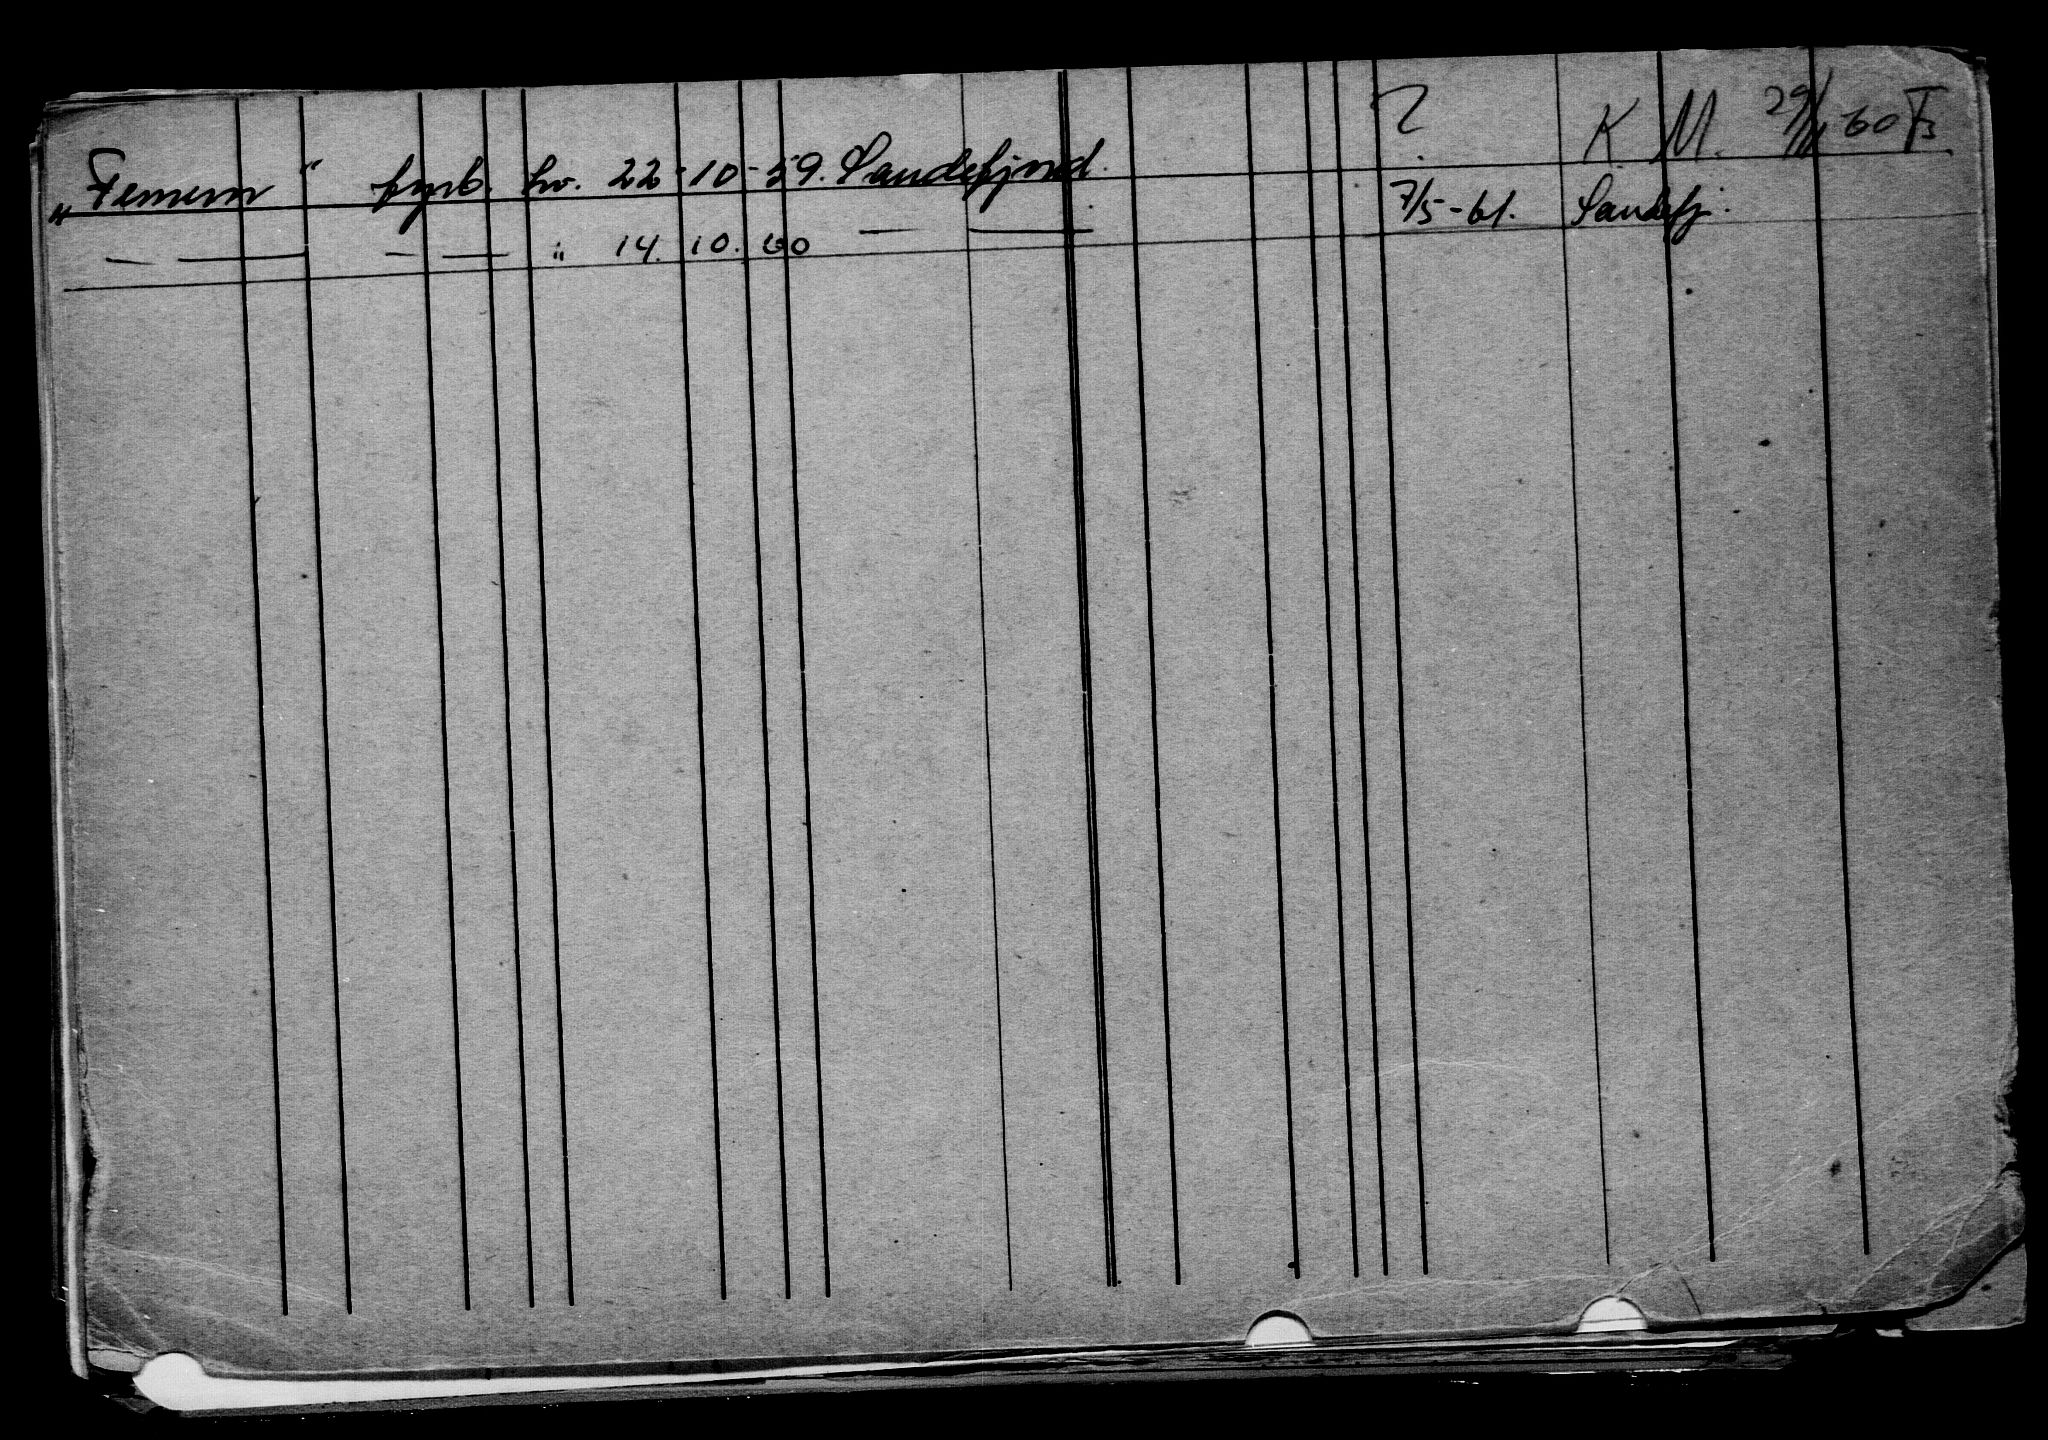 „Fernern" fyrb. hv. 22-10-59. Sandefjord. ? K. M. 29/4 60
— — — — " 14. 10. 60 — — 7/5-61. Sandefj.